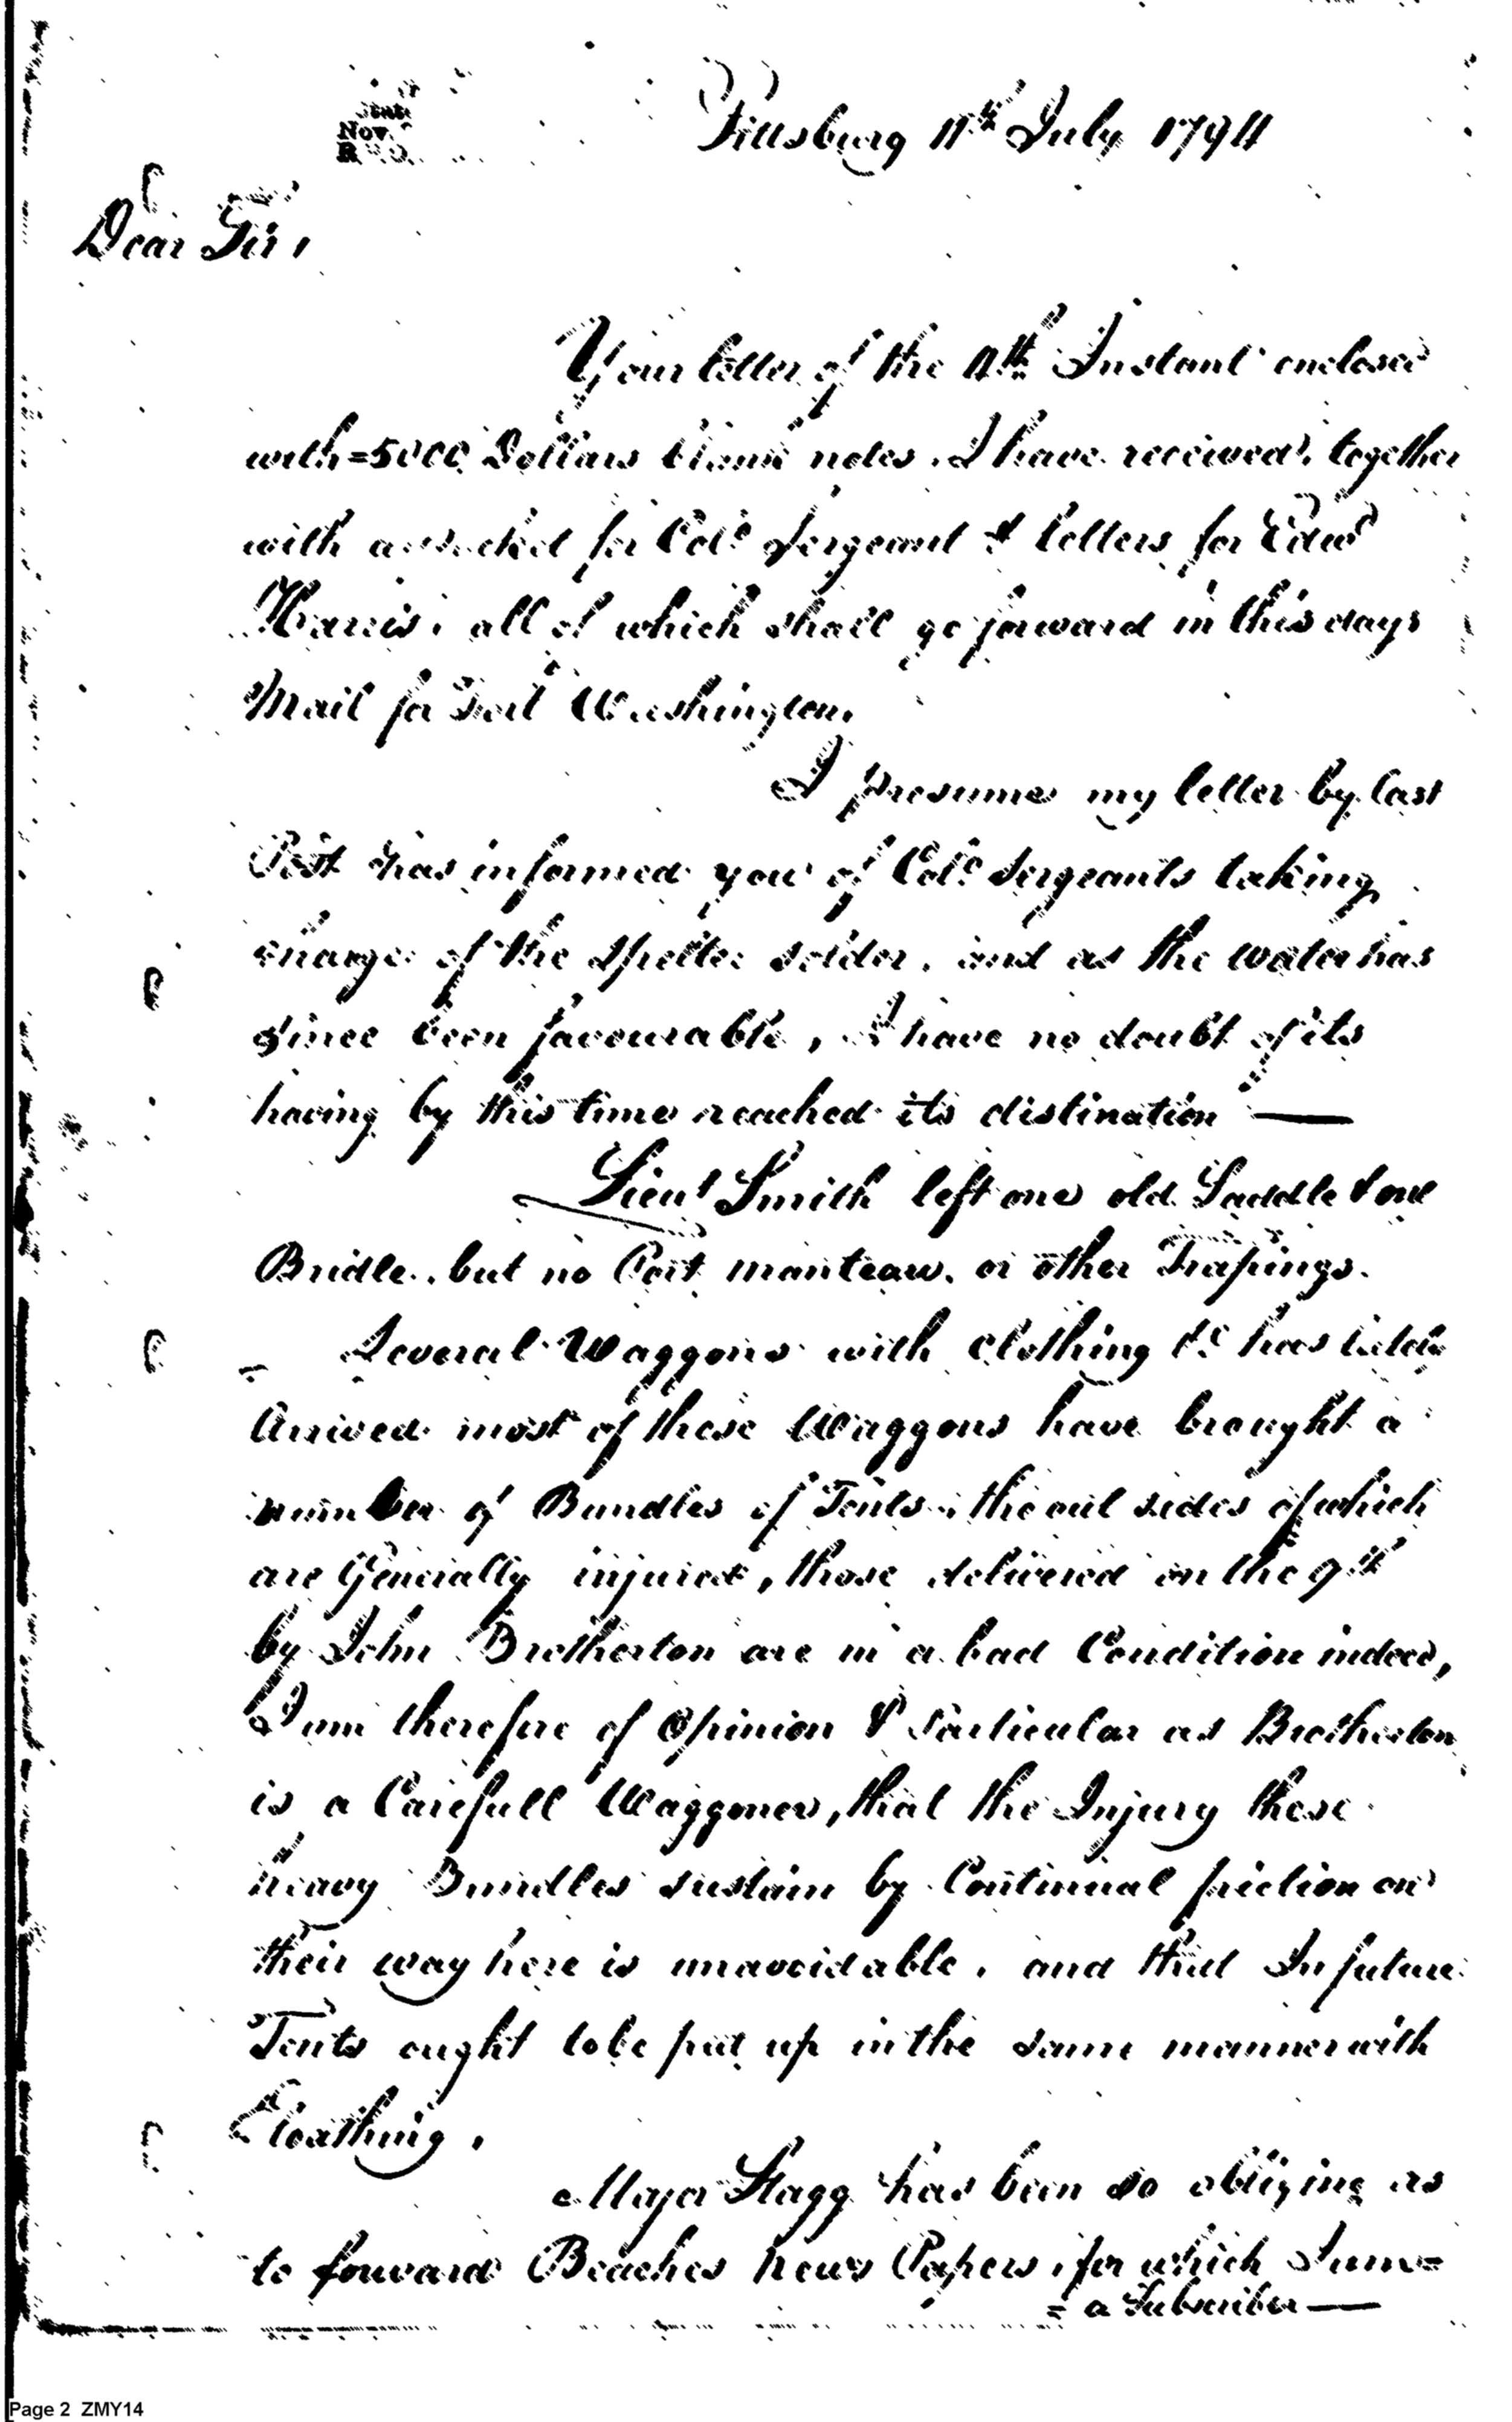 Nov.
Pittsburg 11th July 1794
Dear Sir,
Your letter of the 4th Instant enclosed
with =5000 Dollars blank notes. I have received, together
with a packet for Colo Sergeant & letters for Edwd
Harris, all of which shall go forward in this days
Mail for Fort Washington.
I presume my letter by last
Post has informed you of Colo Sergeants taking
charge of the Spelter solder, and as the water has
since been favourable, I have no doubt of its
having by this time reached its distination —
Lieut Smith left one old Saddle & one
Bridle, but no Port manteau, or other Trapings.
Several Waggons with clothing &c has lately
Arrived most of these Waggons have brought a
number of Bundles of Tents, the out sides of which
are Generally injured, those delivered on the 9th
by John Brotherton are in a bad Condition indeed,
I am therefore of Opinion & Particular as Brotherton
is a Carefull Waggoner, that the Injury these
heavy Bundles sustain by Continual friction on
their way here is unavoidable, and that In future
Tents ought to be put up in the same manner with
Cloathing.
Major Stagg has been so obliging as
to forward Beaches News Papers, for which I am =
= a Subscriber —
Page 2 ZMY14